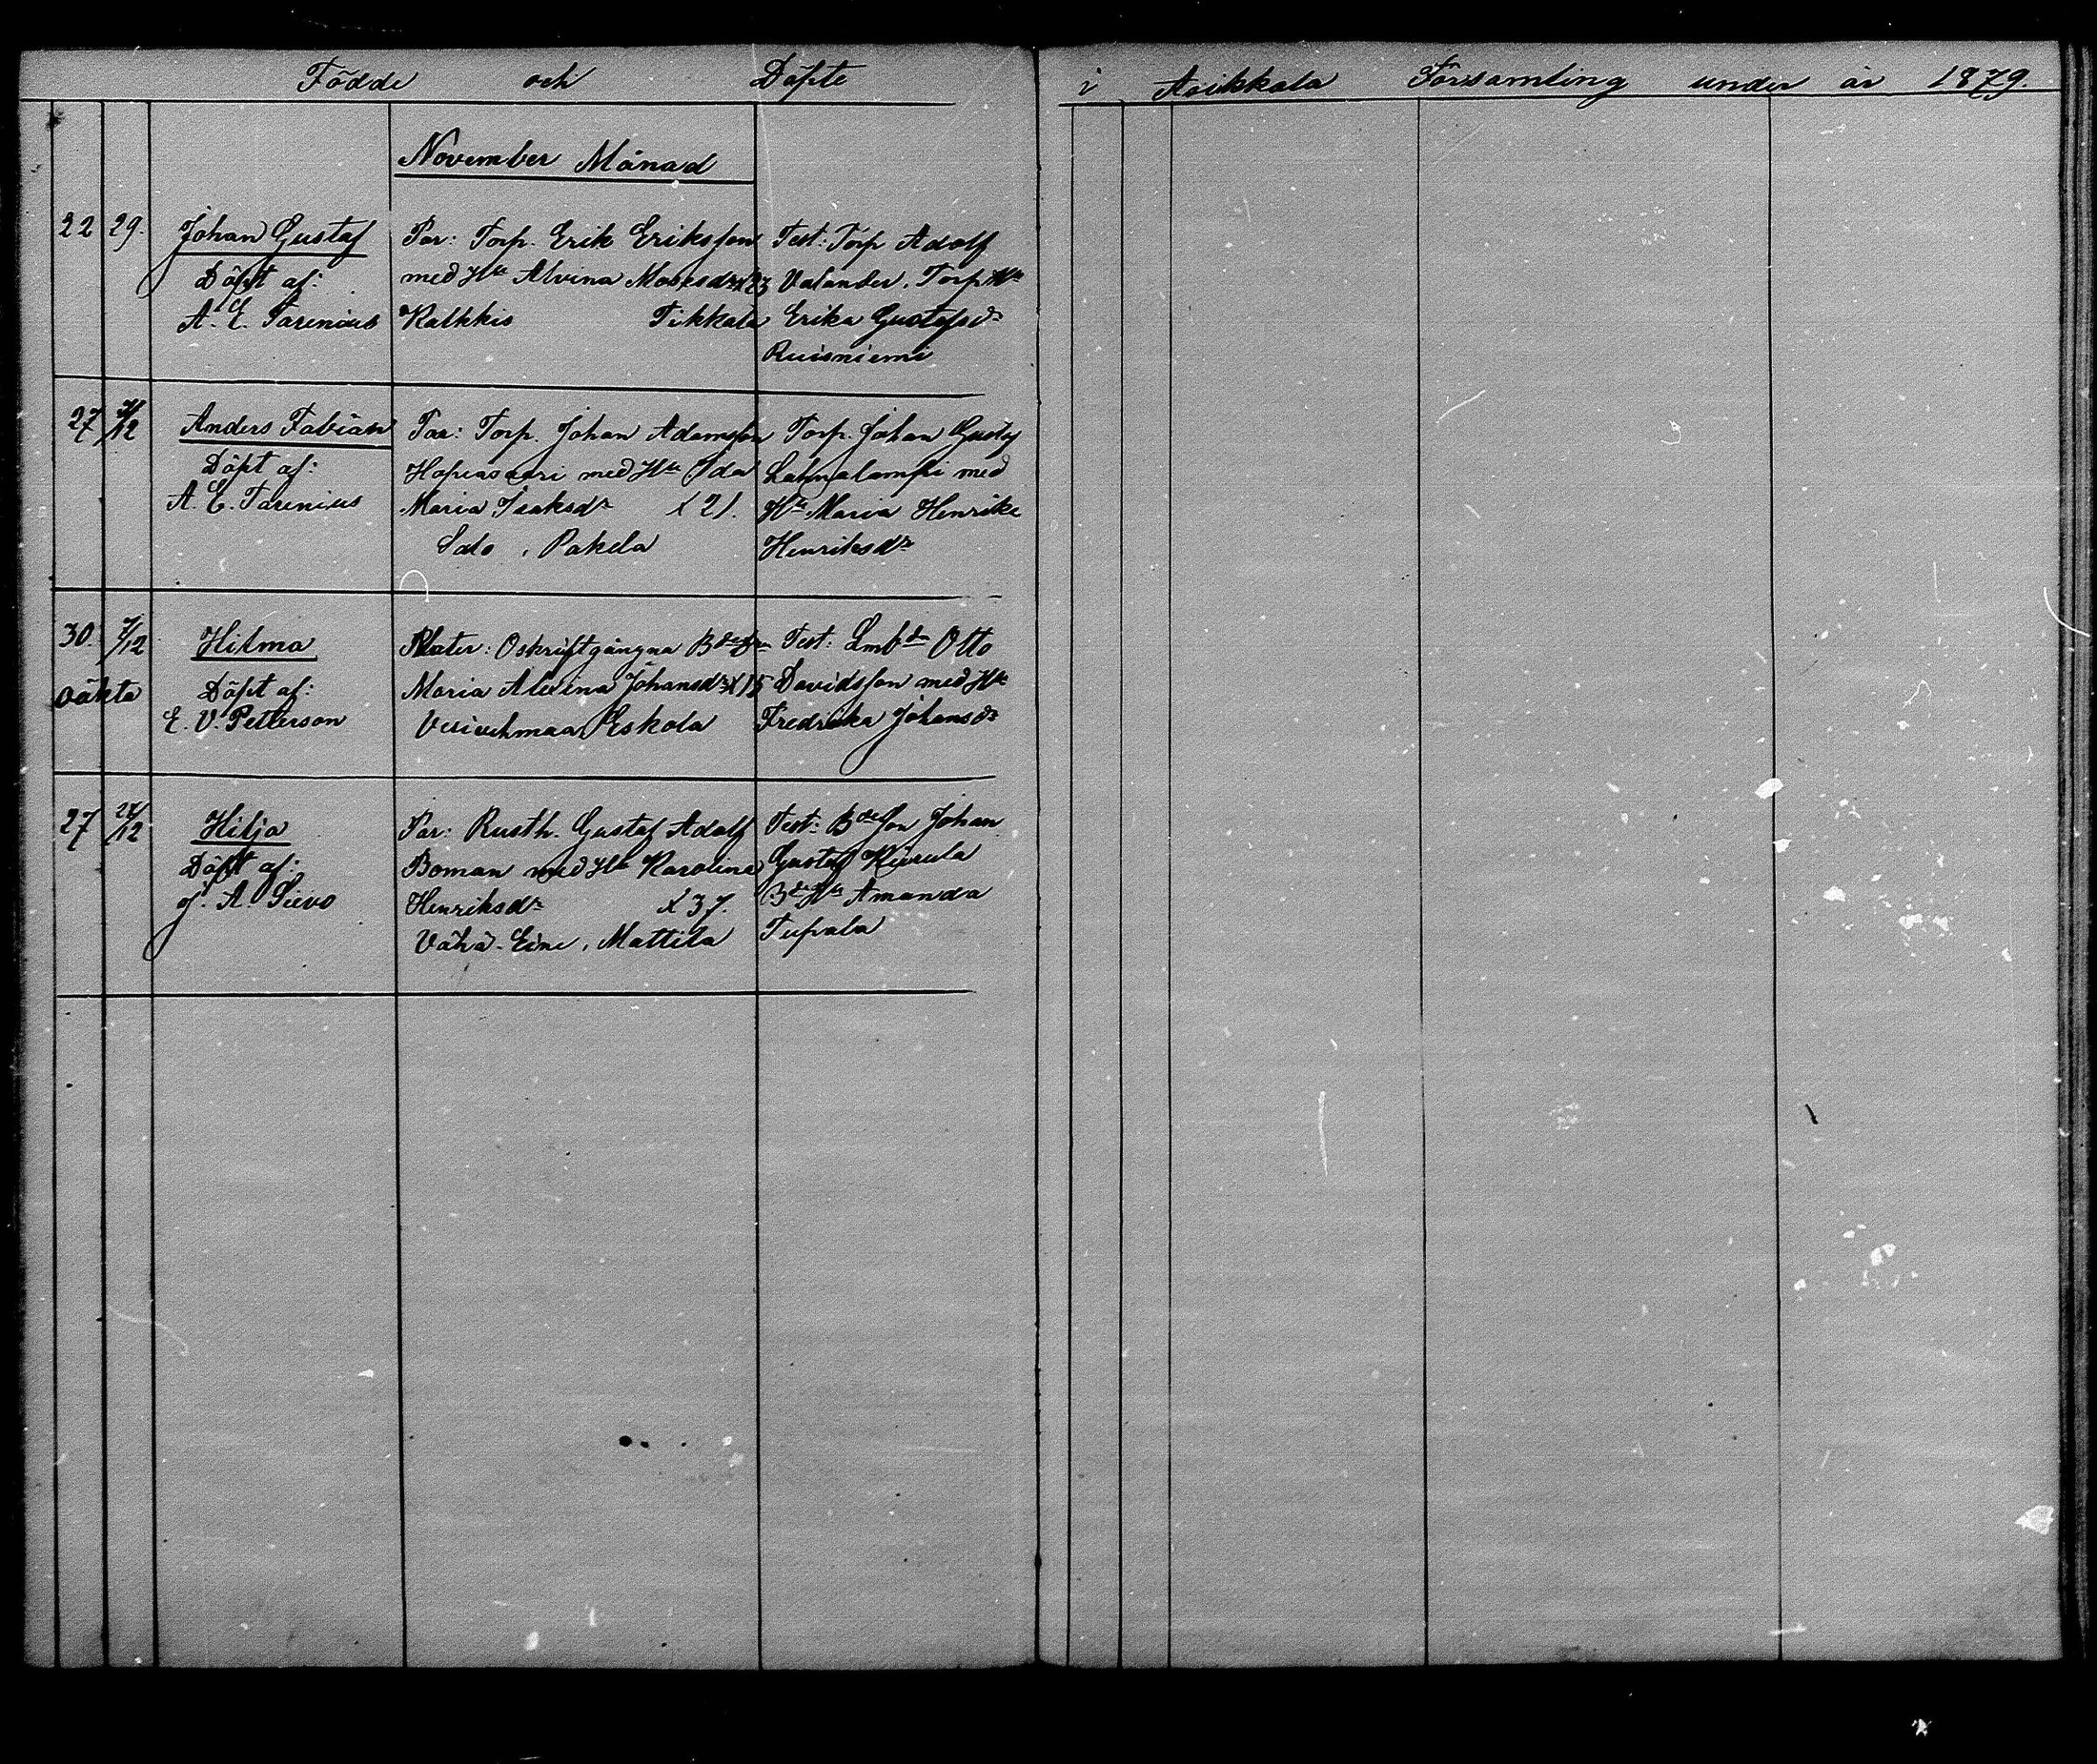 Födde och Döpte i Asikkala Församling under år 1879.
November Månad
22 29. Johan Gustaf
Döpt af:
A. E. Tarenius
Par: Torp. Erik Eriksson
med Hu Alvina Mosesdr x 23
Kalkkis Tikkala
Test: Torp Adolf
Valander. Torp Hu
Erika Gustafsdr
Ruisniemi
27 7/12 Anders Fabian
Döpt af:
A. E. Tarenius
Par: Torp. Johan Adamsson
Hopiasaari med Hu Ida
Maria Isaksdr x 21.
Salo, Pakela
Torp. Johan Gustaf
Lahnalampi med
Hu Maria Henrika
Henriksdr
30. 7/12 Hilma
oäkta Döpt af:
E. V. Petterson
Mater: Oskriftgångna Bdedr
Maria Alexina Johansdr x 15
Eskola
Test: Lmbdn Otto
Davidsson med Hu
Fredrika Johansdr
27 27/12 Hilja
Döpt af:
J. A. Sievo
Par: Rusth. Gustaf Adolf
Boman med Hu Karolina
Henriksdr x 37.
Vähä-Eine, Mattila
Test: Bdeson Johan
Gustaf Kiurula
BdeHu Amanda
Tupala